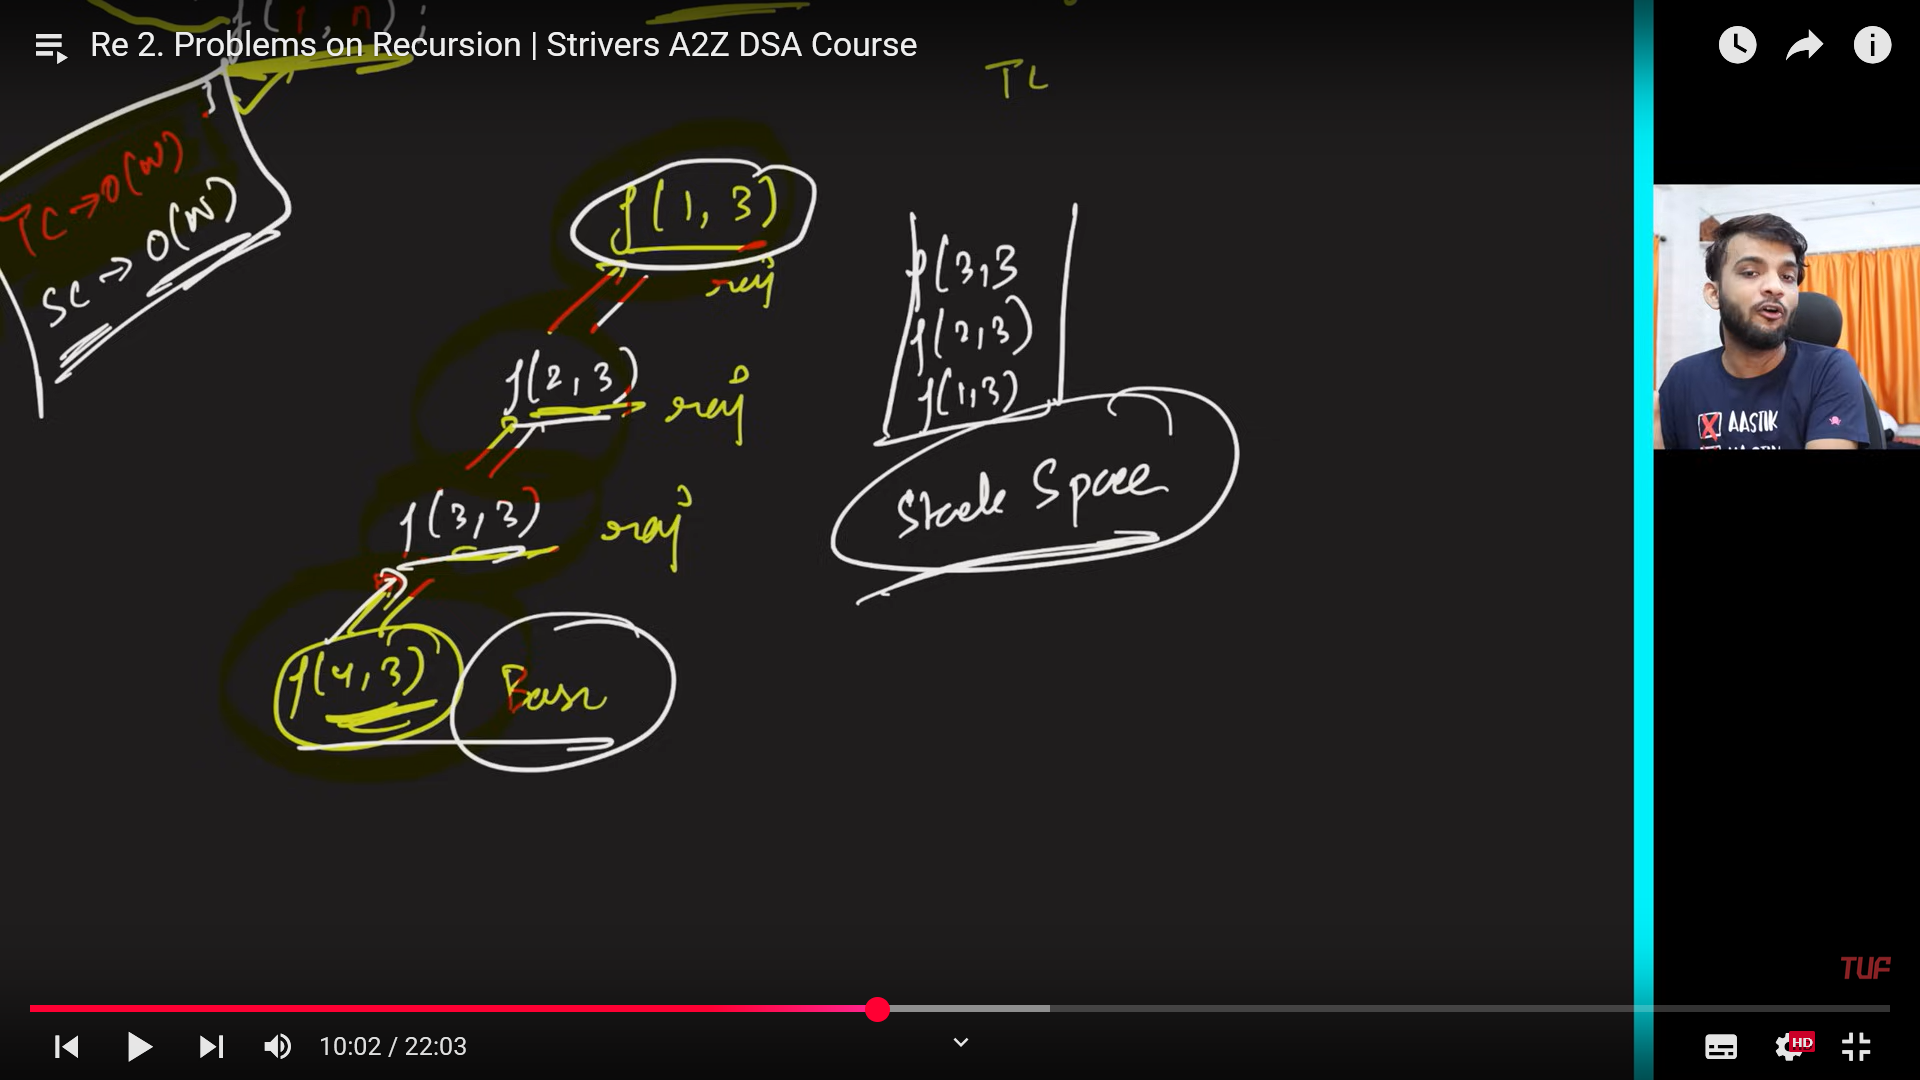 f(1, n);
Re 2. Problems on Recursion | Strivers A2Z DSA Course
TC
}
TC → O(N)
SC → O(N)
f(1, 3)
raj
f(2, 3)
raj
f(3, 3)
raj
f(4, 3)
Base
f(3,3
f(2,3)
f(1,3)
Stack Space
AASTIK
TUF
10:02 / 22:03
HD